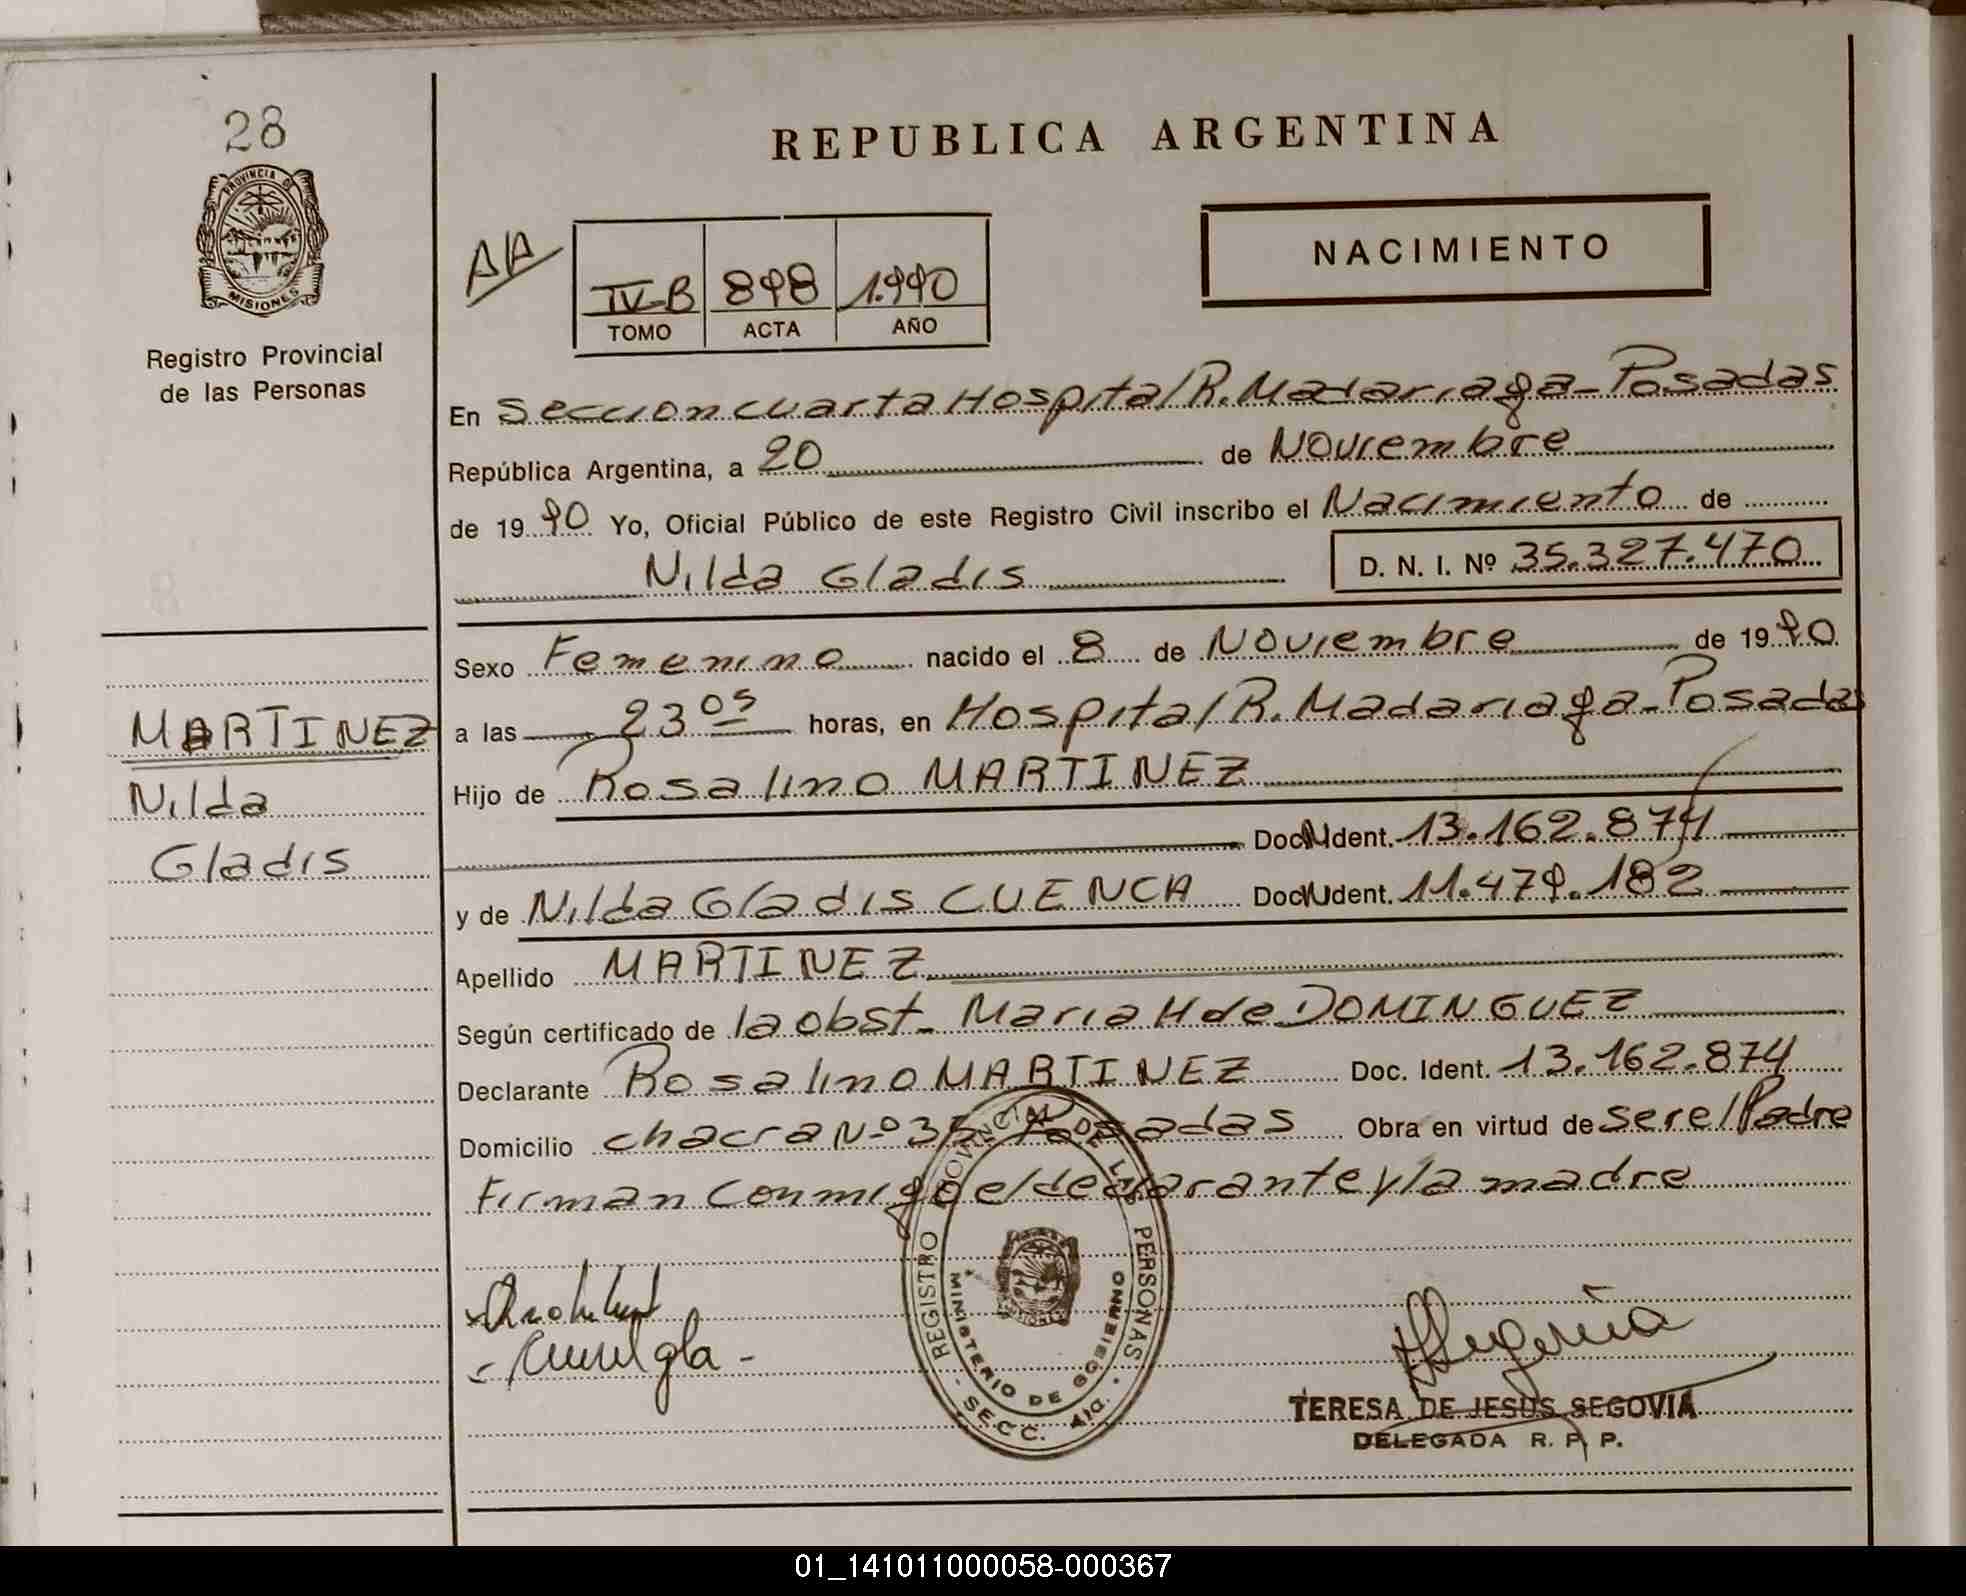 28
PROVINCIA DE
MISIONES
Registro Provincial
de las Personas
MARTINEZ
Nilda
Gladis
REPUBLICA ARGENTINA
AA
IV-B 898 1.990
TOMO ACTA AÑO
NACIMIENTO
En Seccion cuarta Hospital R. Madariaga - Posadas
República Argentina, a 20 de Noviembre
de 1990 Yo, Oficial Público de este Registro Civil inscribo el Nacimiento de
Nilda Gladis D. N. I. Nº 35.327.470
Sexo Femenino nacido el 8 de Noviembre de 1990
a las 23 05 horas, en Hospital R. Madariaga - Posadas
Hijo de Rosalino MARTINEZ
Doc. Ident. 13.162.874
y de Nilda Gladis CUENCA Doc. Ident. 11.479.182
Apellido MARTINEZ
Según certificado de la obst. Maria H de DOMINGUEZ
Declarante Rosalino MARTINEZ Doc. Ident. 13.162.874
Domicilio chacra Nº 35 Posadas Obra en virtud de ser el Padre
Firman conmigo el declarante y la madre
REGISTRO PROVINCIAL DE LAS PERSONAS
MINISTERIO DE GOBIERNO
MISIONES
SECC. 4ta.
TERESA DE JESUS SEGOVIA
DELEGADA R. P. P.
01_141011000058-000367